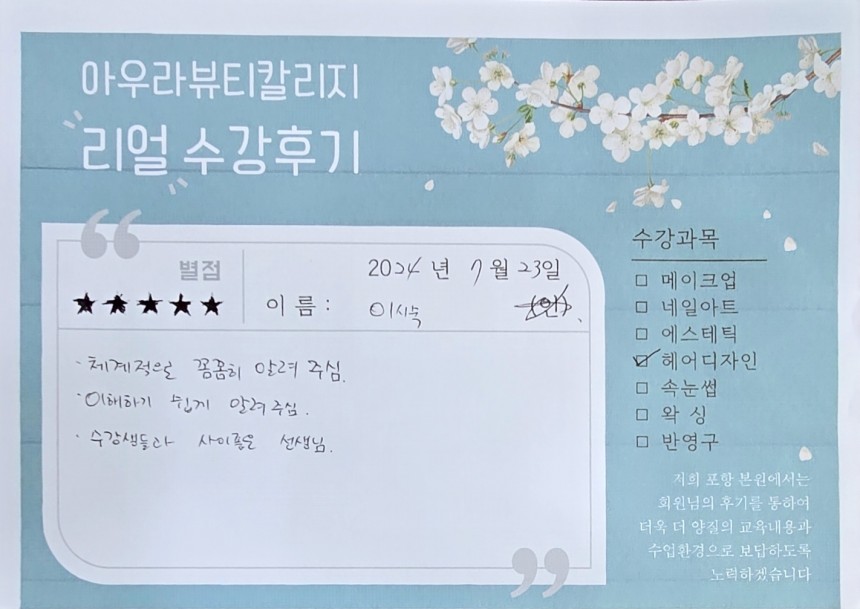 아우라뷰티칼리지
리얼 수강후기
별점
★★★★★
2024년 7월 23일
이 름 : 이시숙 (인)
· 체계적으로 꼼꼼히 알려 주심.
· 이해하기 쉽게 알려 주심.
· 수강생들과 사이좋은 선생님.
수강과목
□ 메이크업
□ 네일아트
□ 에스테틱
☑ 헤어디자인
□ 속눈썹
□ 왁 싱
□ 반영구
저희 포항 본원에서는
회원님의 후기를 통하여
더욱 더 양질의 교육내용과
수업환경으로 보답하도록
노력하겠습니다